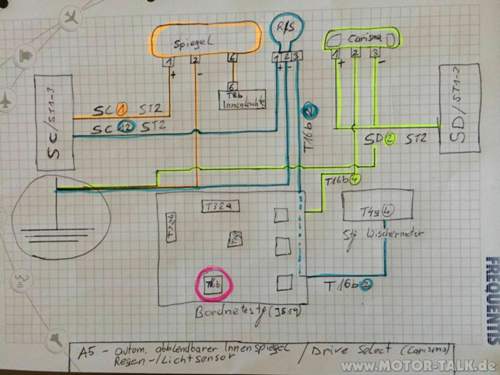 R/S
Spiegel
Carisma
1 2 6
1 2 3
1 2 3
+ -
+ -
+ -
6
T6b
Innenleuchte
SC/ST1-3
SC 1 ST2
SC 12 ST2
SD/ST1-2
SD 2 ST2
T16b 2
T16b 4
T32a
T4s 4
Stg Wischermotor
T16b
T16b 2
Bordnetzstg (J519)
A5 - autom. abblendbarer Innenspiegel / Drive Select (Carisma)
Regen-/Lichtsensor
FREQUENTIS
www.MOTOR-TALK.de